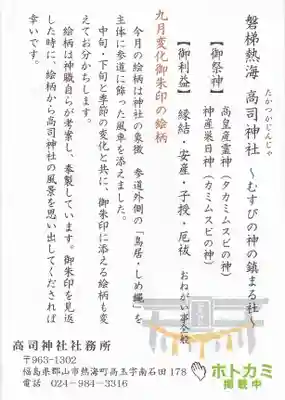 磐梯熱海 高司神社 ~むすびの神の鎮まる社~
たかつかじんじゃ
【御祭神】 高皇産霊神(タカミムスビの神)
神産巣日神(カミムスビの神)
【御利益】 縁結・安産・子授・厄祓 おねがい事全般
九月変化御朱印の絵柄
今月の絵柄は神社の象徴 参道外側の「鳥居・しめ縄」を
主体に参道に飾った風車を添えました。
中旬・下旬と季節の変化と共に、御朱印に添える絵柄も変
えてお分かちします。
絵柄は神職自らが考案し、奉製しています。御朱印を見返
した時に、絵柄から高司神社の風景を思い出してくだされば
幸いです。
高司神社社務所
〒963-1302
福島県郡山市熱海町高玉字南石田178
電話 024-984-3316
ホトカミ
掲載中